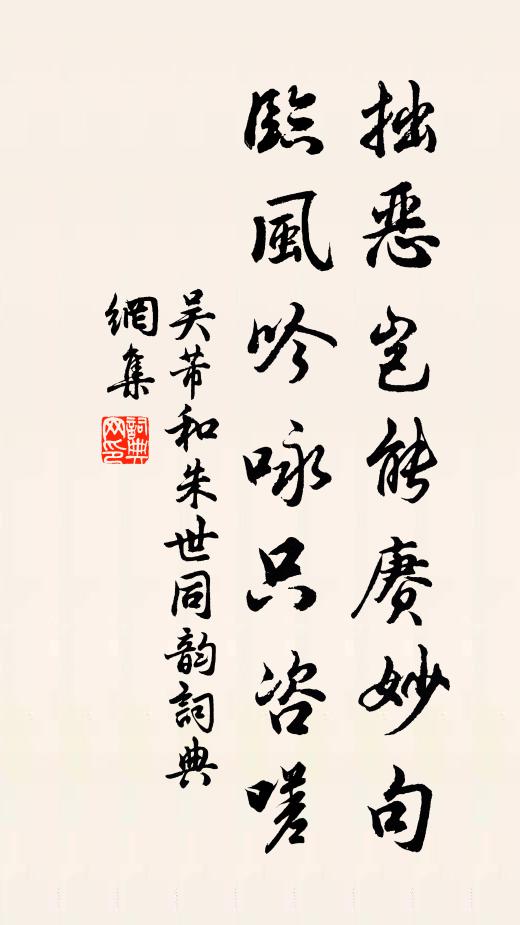 拙惡豈能賡妙句
臨風吟咏只咨嗟
吳芾和朱世同韵詞典
網集
詞典
网印